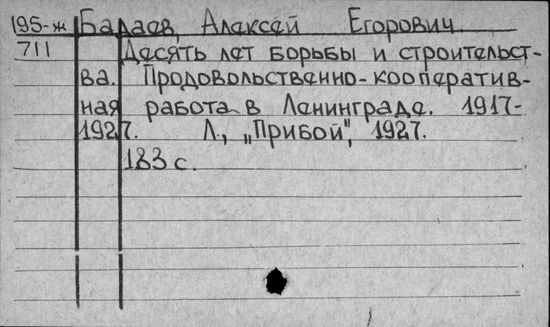 195-ж Бадаев, Алексей Егорович.
711 Десять лет борьбы и строительст-
ва. Продовольственно-кооператив-
ная работа в Ленинграде. 1917-
1927. Л., „Прибой", 1927.
183 с.